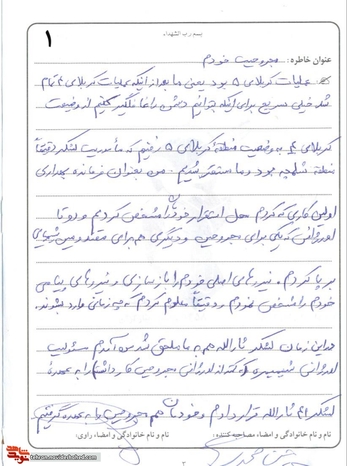 بسم رب الشهداء
۱
عنوان خاطره: مجروحیت خودم
عملیات کربلای ۵ بود یعنی ما بعد از اینکه عملیات کربلای ۴ تمام
شد خیلی سریع برای اینکه بتوانیم دشمن را غافلگیر کنیم از وضعیت
کربلای ۴ به وضعیت منطقه کربلای ۵ رفتیم که مأموریت لشکر دقیقاً
منطقه شلمچه بود و ما مستقر شدیم. من بعنوان فرمانده بهداری
اولین کاری که کردم محل استقرار خودمان را مشخص کردیم و دو تا
اورژانس که یکی برای مجروحین و دیگری هم برای مصدومین شیمیایی
بر پا کردم. نیروهای اصلی خودم را بازسازی و نیروهای
خودم را مشخص نمودم و دقیقاً معلوم کردم که چه زمانی وارد بشوند.
در این زمان لشکر ثارالله هم به ما ملحق شد من آمدم مسئولیت
اورژانس شیمیایی را که کنار اورژانس مجروحین کار داشتم را به عهده
لشکر ۴۱ ثارالله قرار دادم و خودمان هم مجروحین را به عهده گرفتیم
نام و نام خانوادگی و امضاء مصاحبه کننده:
نام و نام خانوادگی و امضاء راوی:
۳
tehran.navideshahed.com